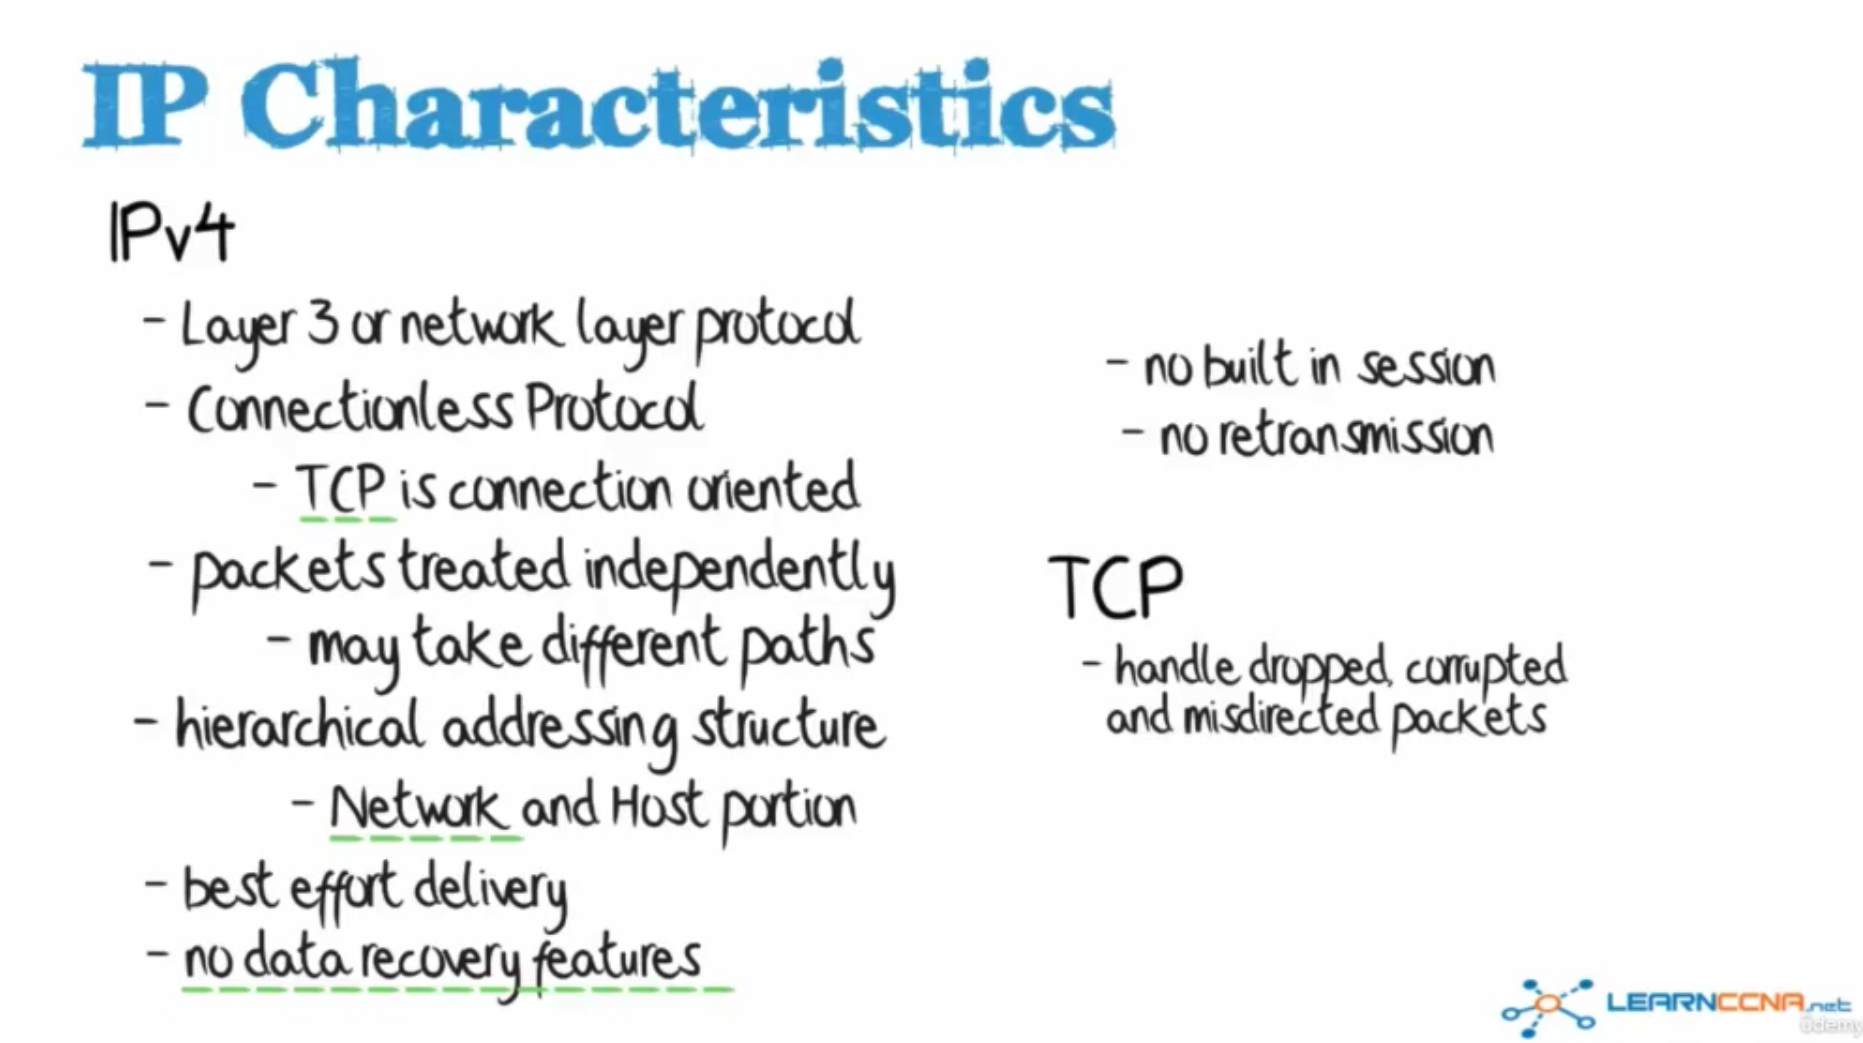 IP Characteristics
IPv4
- Layer 3 or network layer protocol
- Connectionless Protocol
- TCP is connection oriented
- packets treated independently
- may take different paths
- hierarchical addressing structure
- Network and Host portion
- best effort delivery
- no data recovery features
- no built in session
- no retransmission
TCP
- handle dropped, corrupted
and misdirected packets
LEARNCCNA.net
ûdemy